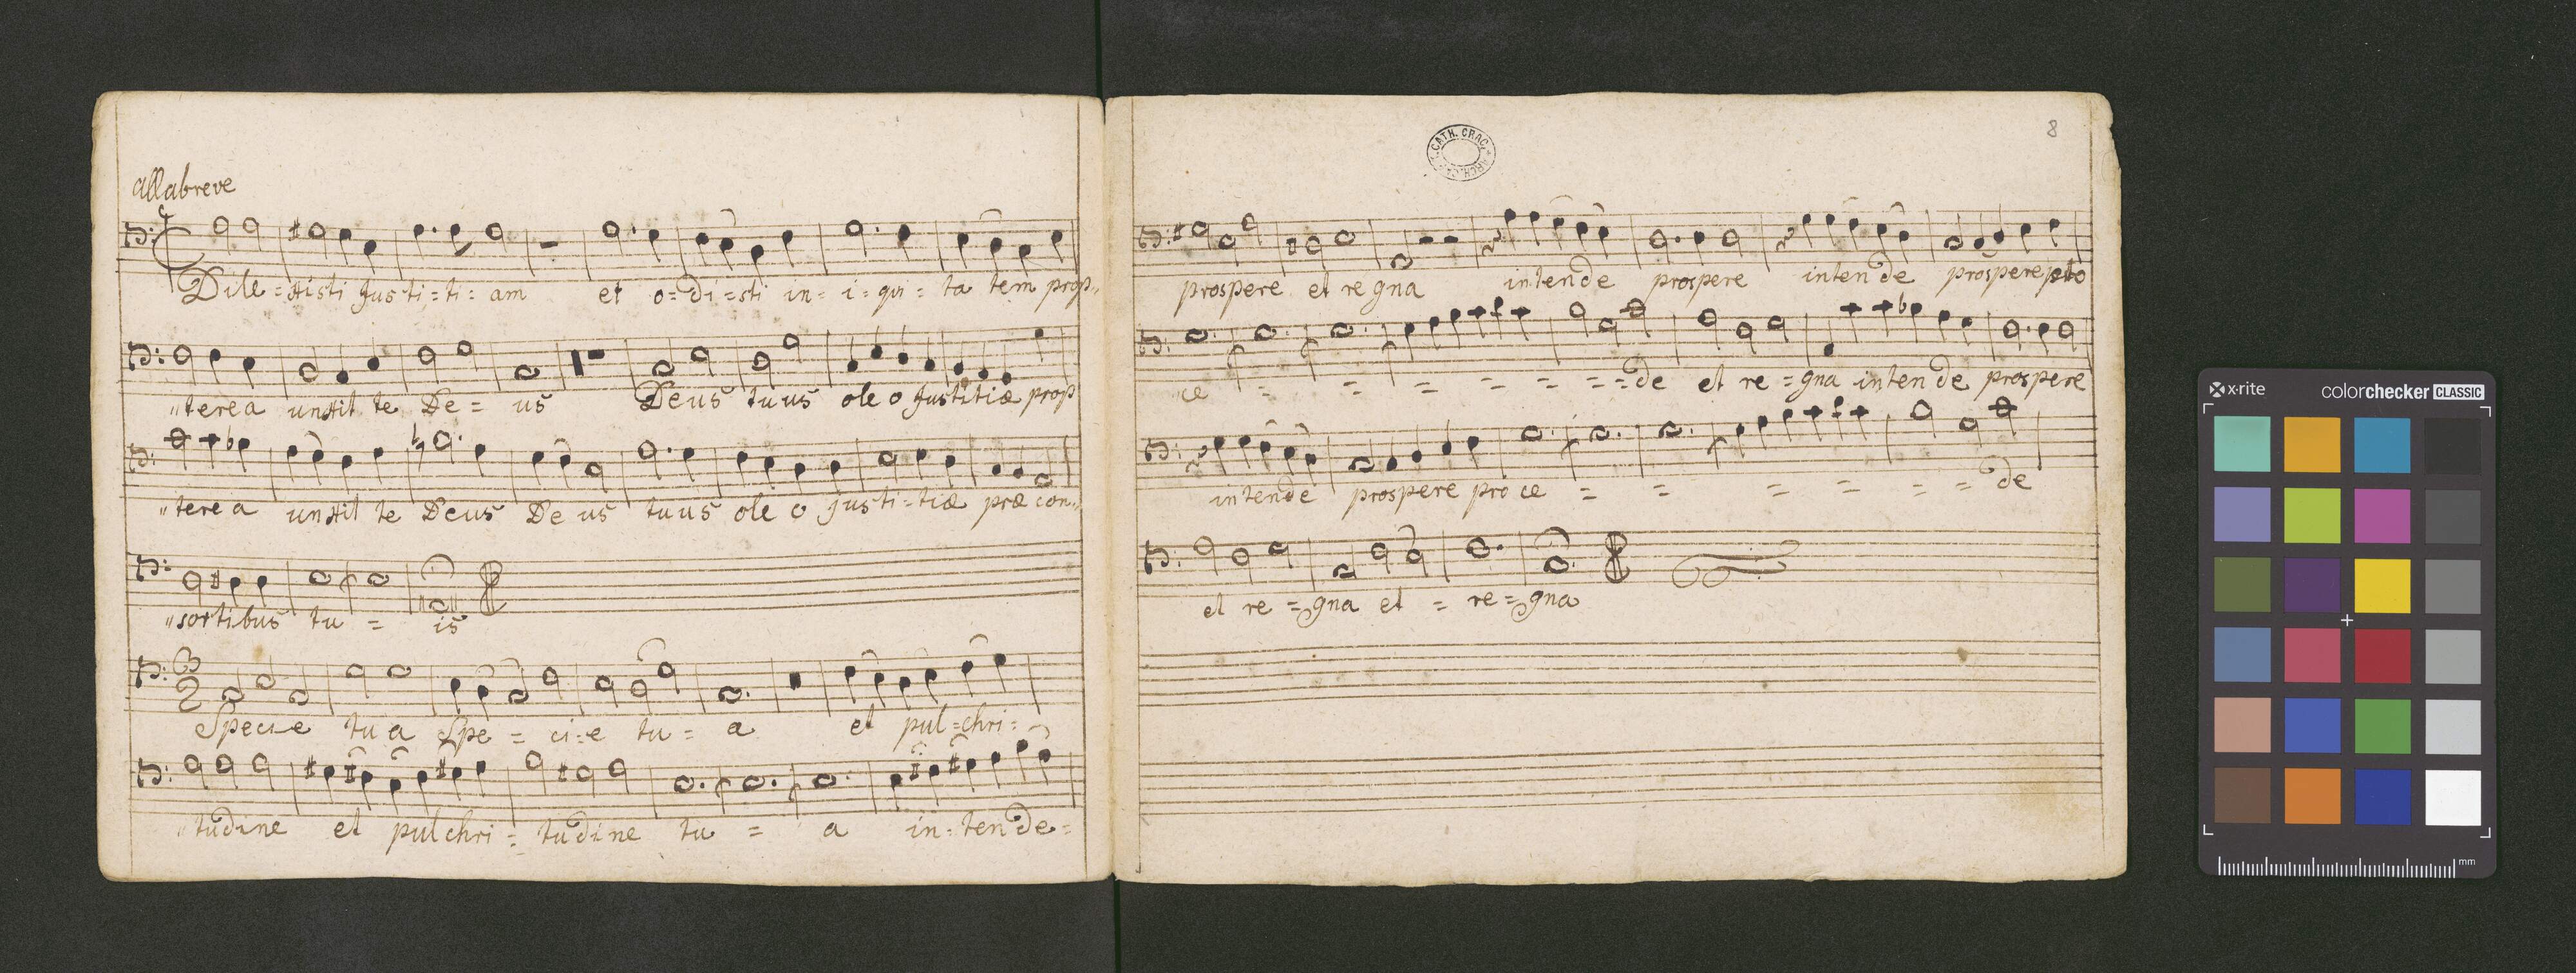 allabreve
Dile=xisti Jus ti=ti=am et o=di=sti in=i=qui=ta tem prop„
„terea unxit te De=us Deus tuus ole o Justitiæ prop
„terea unxit te Deus De us tuus ole o justi=tiæ præ con„
„sortibus tu = is
3
2
Specie tu a Spe = ci=e tu = a et pul=chri=
„tudine et pulchri = tudine tu = a in=tende=
8
CATH. CRAC.
prospere et regna intende prospere intende prospere pro
ce = = = = = = = de et re=gna intende prospere
intende prospere pro ce = = = = = = de
et re=gna et = re=gna
x·rite
colorchecker CLASSIC
mm